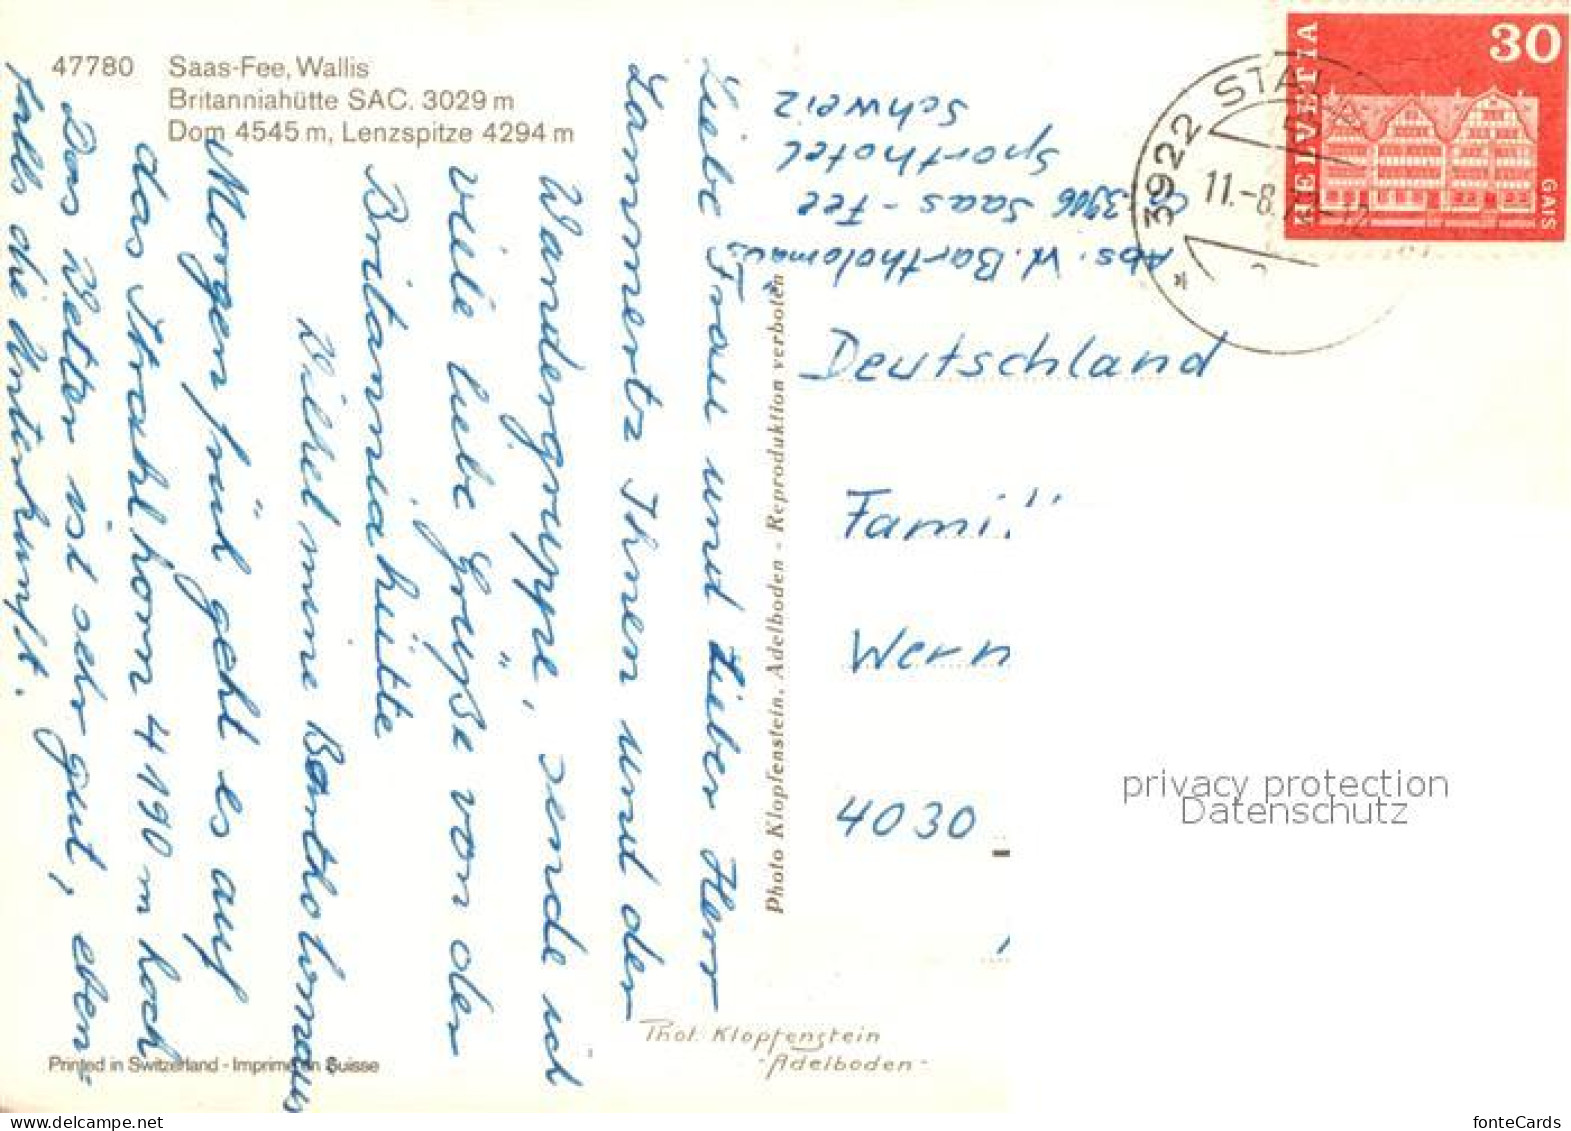 47780 Saas-Fee, Wallis
Britanniahütte SAC. 3029 m
Dom 4545 m, Lenzspitze 4294 m
Liebe Frau und Lieber Herr
Lammertz Ihnen und der
Wandergruppe, sende ich
viele liebe Grüße von der
Britanniahütte
Wilhelmine Bartholomäus
Morgen früh geht es auf
das Strahlhorn 4190 m hoch
Das Wetter ist sehr gut, eben-
falls die Unterkunft.
Printed in Switzerland - Imprimé en Suisse
Photo Klopfenstein, Adelboden - Reproduktion verboten
Phot. Klopfenstein
- Adelboden -
Abs. W. Bartholomäus
3906 Saas-Fee
Sporthotel
Schweiz
Deutschland
Fami
Wern
4030
HELVETIA
30
GAIS
3922
11.-8.
privacy protection
Datenschutz
fonteCards